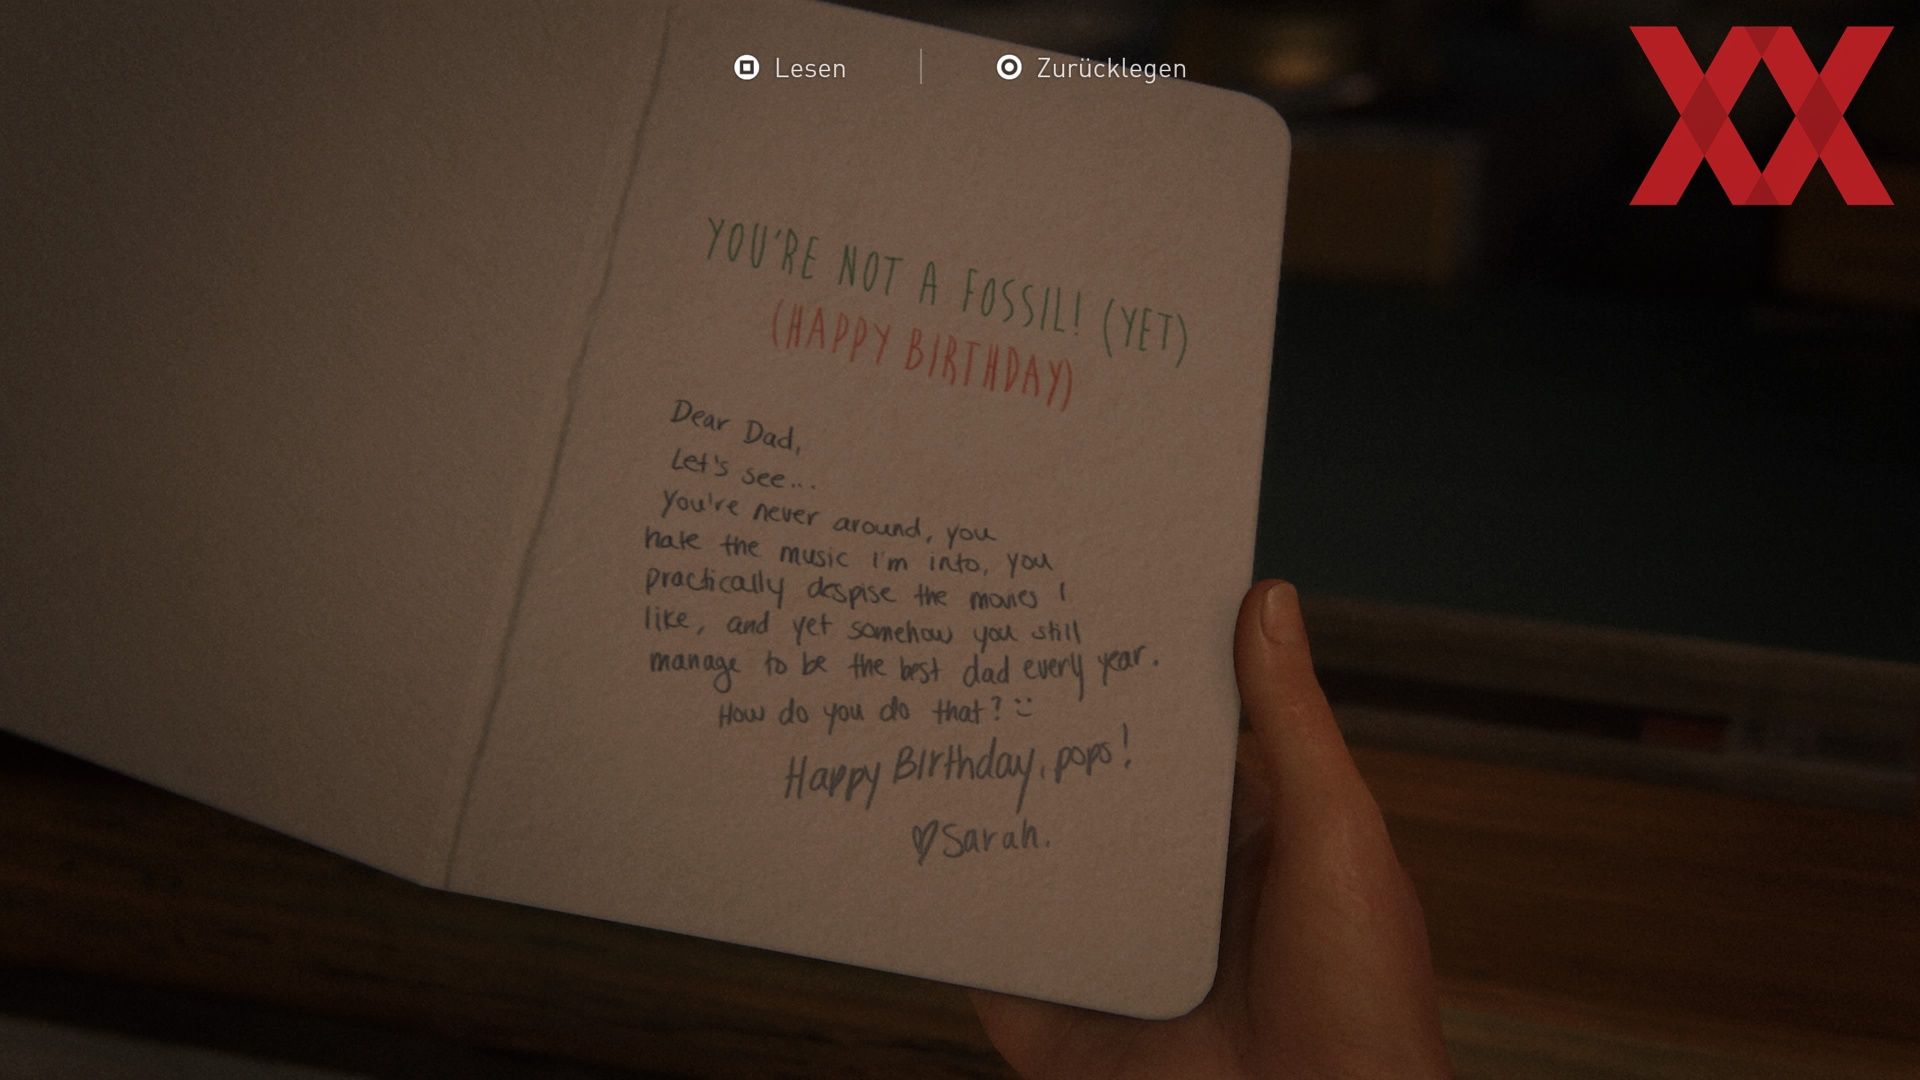 Lesen
Zurücklegen
YOU'RE NOT A FOSSIL! (YET)
(HAPPY BIRTHDAY)
Dear Dad,
Let's see...
You're never around, you
hate the music I'm into, you
practically despise the movies I
like, and yet somehow you still
manage to be the best dad every year.
How do you do that? :)
Happy Birthday, pops!
♡Sarah.